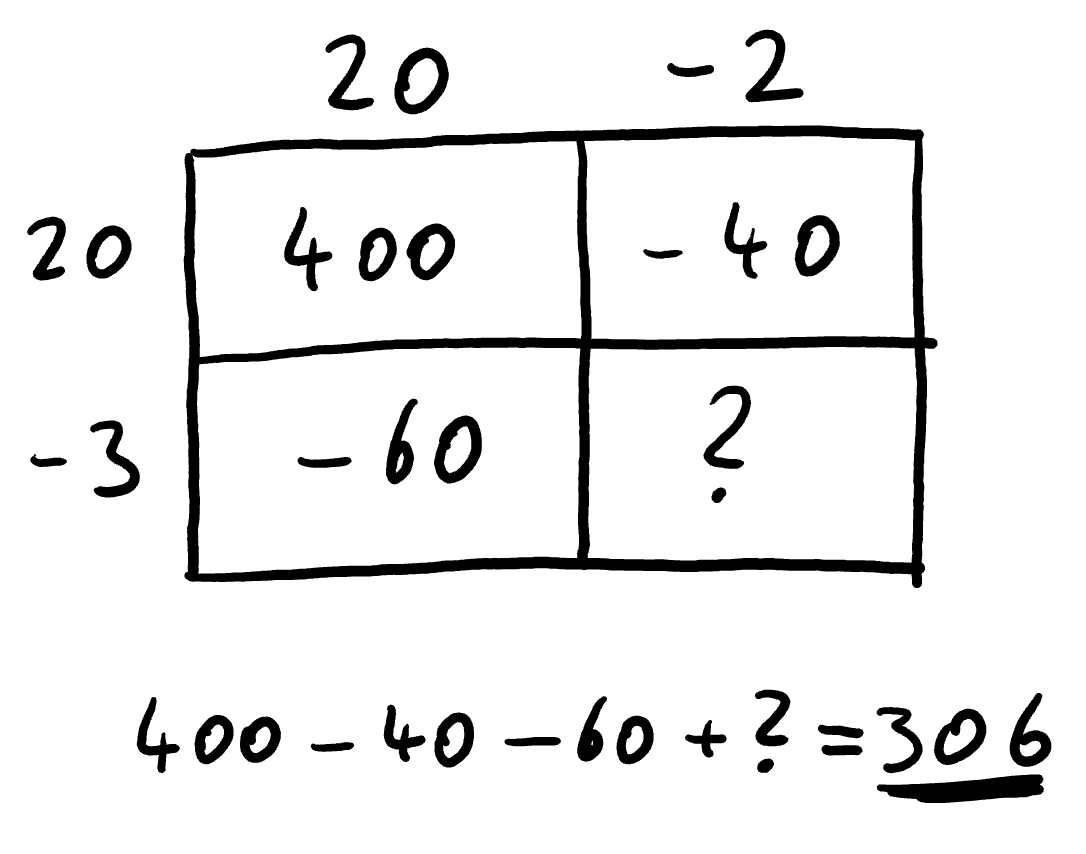 20 -2
20 400 -40
-3 -60 ?
400 - 40 - 60 + ? = 306